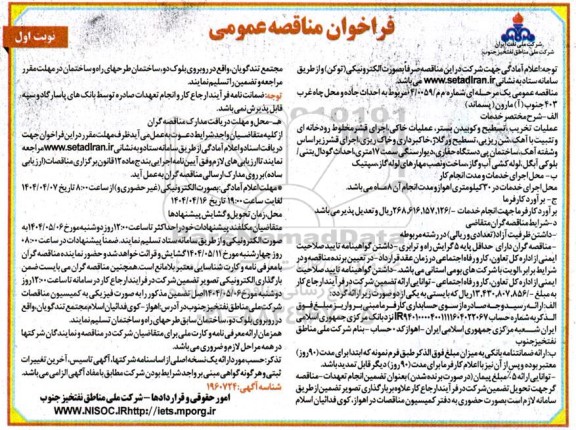 نوبت اول
فراخوان مناقصه عمومی
شرکت ملی نفت ایران
شرکت ملی مناطق نفتخیز جنوب
توجه: اعلام آمادگی جهت شرکت در این مناقصه صرفاً بصورت الکترونیکی (توکن) و از طریق
سامانه ستاد به نشانی www.setadiran.ir می باشد.
مناقصه عمومی یک مرحله ای شماره م م/۴/۰۰۵۹ مربوط به احداث جاده و محل چاه غرب
۴۰۳ جنوب (آ) مارون (پسماند)
الف - شرح مختصر خدمات
عملیات تخریب، تسطیح و کوبیدن بستر، عملیات خاکی، اجرای قشر مخلوط رودخانه ای
و تثبیت با آهک، شن ریزی، تسطیح ورگلاژ، خاکبرداری و خاک ریزی، اجرای قشر زیراساس
وشفته آهک، ساختمان پی دستگاه حفاری، دیوار سنگی سمت ۱۷ متری، احداث گودال بتنی /
بلوکی آبگل، لوله کشی آب و گاز، ساخت ونصب مهار های لوله گاز، سپتیک
ب- محل اجرای خدمات و مدت انجام کار
محل اجرای خدمات در ۳۰ کیلومتری اهواز و مدت انجام آن ۸ ماه می باشد.
ج - برآورد کارفرما
برآورد کارفرما جهت انجام خدمات ۲۶۸,۶۱۶,۱۵۷,۱۲۶/- ریال و تعدیل پذیر می باشد
د- شرایط مناقصه گران متقاضی
- داشتن ظرفیت آزاد (تعدادی و ریالی) در رشته مربوطه
- مناقصه گران دارای حداقل پایه ۵ گرایش راه و ترابری - داشتن گواهینامه تایید صلاحیت
ایمنی از اداره کل تعاون، کار و رفاه اجتماعی در زمان عقد قرارداد - در تعیین برنده مناقصه و در
شرایط برابر الویت با شرکت های بومی استانی می باشد - داشتن گواهینامه تایید صلاحیت
ایمنی از اداره کل تعاون، کار و رفاه اجتماعی - توانایی ارائه تضمین شرکت در فرآیند ارجاع کار
به مبلغ ۱۳,۴۳۰,۸۰۷,۸۵۶/- ریال که بایستی به یکی از دو صورت زیر ارائه گردد:
الف: ارائه رسید وجه صادره از سوی حسابداری کارفرما مبنی بر واریز مبلغ فوق
الذکر به شماره حساب نزد بانک مرکزی جمهوری اسلامی
ایران شعبه مرکزی جمهوری اسلامی ایران - اهواز کد - حساب - بنام شرکت ملی مناطق
نفتخیز جنوب
ب: ارائه ضمانتنامه بانکی به میزان مبلغ فوق الذکر طبق فرم نمونه که ابتدا برای مدت (۹۰ روز)
معتبر بوده و پس از نیز با اعلام کارفرما برای مدت (۹۰ روز) دیگر قابل تمدید باشد.
- توانایی ارائه ۵٪ مبلغ پیمان (در صورت برنده شدن) بعنوان تضمین انجام تعهدات - مناقصه
گر جهت تحویل تضمین شرکت در فرآیند ارجاع کار علاوه بر بارگذاری تصویر تضمین از طریق
سامانه لازم است بصورت حضوری به دفتر کمیسیون مناقصات در اهواز، کوی فدائیان اسلام
مجتمع تندگویان، واقع در روبروی بلوک دو، ساختمان طرحهای راه و ساختمان در مهلت مقرر
مراجعه و تضمین را تسلیم نمایند.
توجه: ضمانت نامه فرآیند ارجاع کار و انجام تعهدات صادره توسط بانک های پاسارگاد و سپه
قابل پذیرش نمی باشد.
هـ- محل و مهلت دریافت مدارک مناقصه گران
از کلیه متقاضیان واجد شرایط دعوت به عمل می آید ظرف مهلت مقرر در این فراخوان جهت
دریافت اسناد و اعلام آمادگی از طریق سامانه ستاد و به نشانی www.setadiran.ir مراجعه
نمایند تا ارزیابی های لازم وفق آیین نامه اجرایی بند ج ماده ۱۲ قانون برگزاری مناقصات (ارزیابی
ساده) بر روی مدارک ارسالی مناقصه گران به عمل آید.
* مهلت اعلام آمادگی: بصورت الکترونیکی (غیر حضوری و) از ساعت ۸:۰۰ تاریخ ۱۴۰۴/۰۴/۰۷
لغایت ساعت ۱۹:۰۰ تاریخ ۱۴۰۴/۰۴/۱۶
محل، زمان تحویل و گشایش پیشنهادها
متقاضیان مکلفند پیشنهادات خود را حداکثر تا ساعت ۱۲:۰۰ روز دوشنبه مورخ ۱۴۰۴/۰۵/۰۶ به
صورت الکترونیکی و از طریق سامانه ستاد تسلیم نمایند. ضمنا پیشنهادات در ساعت ۰۸:۰۰
روز چهارشنبه مورخ ۱۴۰۴/۰۵/۱۱ گشایش و قرائت خواهد شد و حضور نماینده مناقصه گران
با معرفی نامه و کارت شناسایی معتبر بلامانع است. همچنین مناقصه گران می بایست ضمن
بارگذاری الکترونیکی تصویر تضمین شرکت در فرآیند ارجاع کار در سامانه تا ساعت ۱۲:۰۰ روز
دوشنبه مورخ ۱۴۰۴/۰۵/۰۶ اصل تضمین مذکور را به صورت فیزیکی به کمیسیون مناقصات
شرکت ملی مناطق نفتخیز جنوب در آدرس: اهواز - کوی فدائیان اسلام مجتمع تندگویان، واقع
در روبروی بلوک دو، ساختمان سابق طرحهای راه و ساختمان تسلیم نمایند.
همراه داشتن معرفی نامه و کارت ملی برای متقاضیان شرکت در مناقصه و نمایندگان شرکتها
در همه مراحل لازم و ضروری می باشد.
تذکر: حسب مورد ارائه یک نسخه اصلی از اساسنامه شرکتها، آگهی تاسیس، آخرین تغییرات
ثبتی و هر گونه گواهی مبنی بر واجد شرایط بودن شرکت مطابق با مفاد آگهی الزامی می باشد.
شناسه آگهی: ۱۹۶۰۷۲۴
امور حقوقی و قراردادها - شرکت ملی مناطق نفتخیز جنوب
WWW.NISOC.IRhttp://iets.mporg.ir